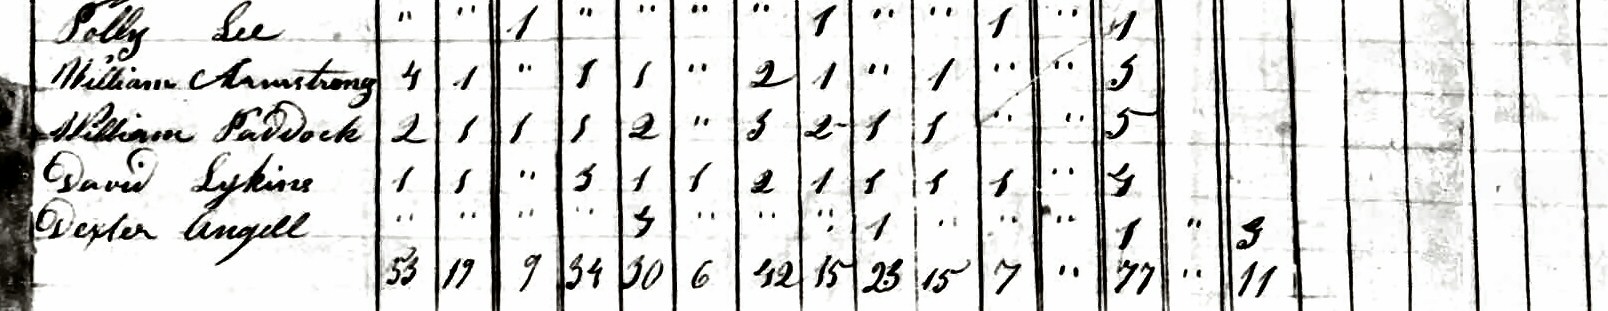 Polly Lee " " 1 " " " " 1 " " 1 " 1
William Armstrong 4 1 " 1 1 " 2 1 " 1 " " 3
William Paddock 2 1 1 1 2 " 3 2 1 1 " " 5
David Lykins 1 1 " 3 1 1 2 1 1 1 1 " 4
Dexter Angell " " " " 4 " " " 1 " " " 1 " 3
53 19 9 34 30 6 42 15 23 15 7 " 77 " 11